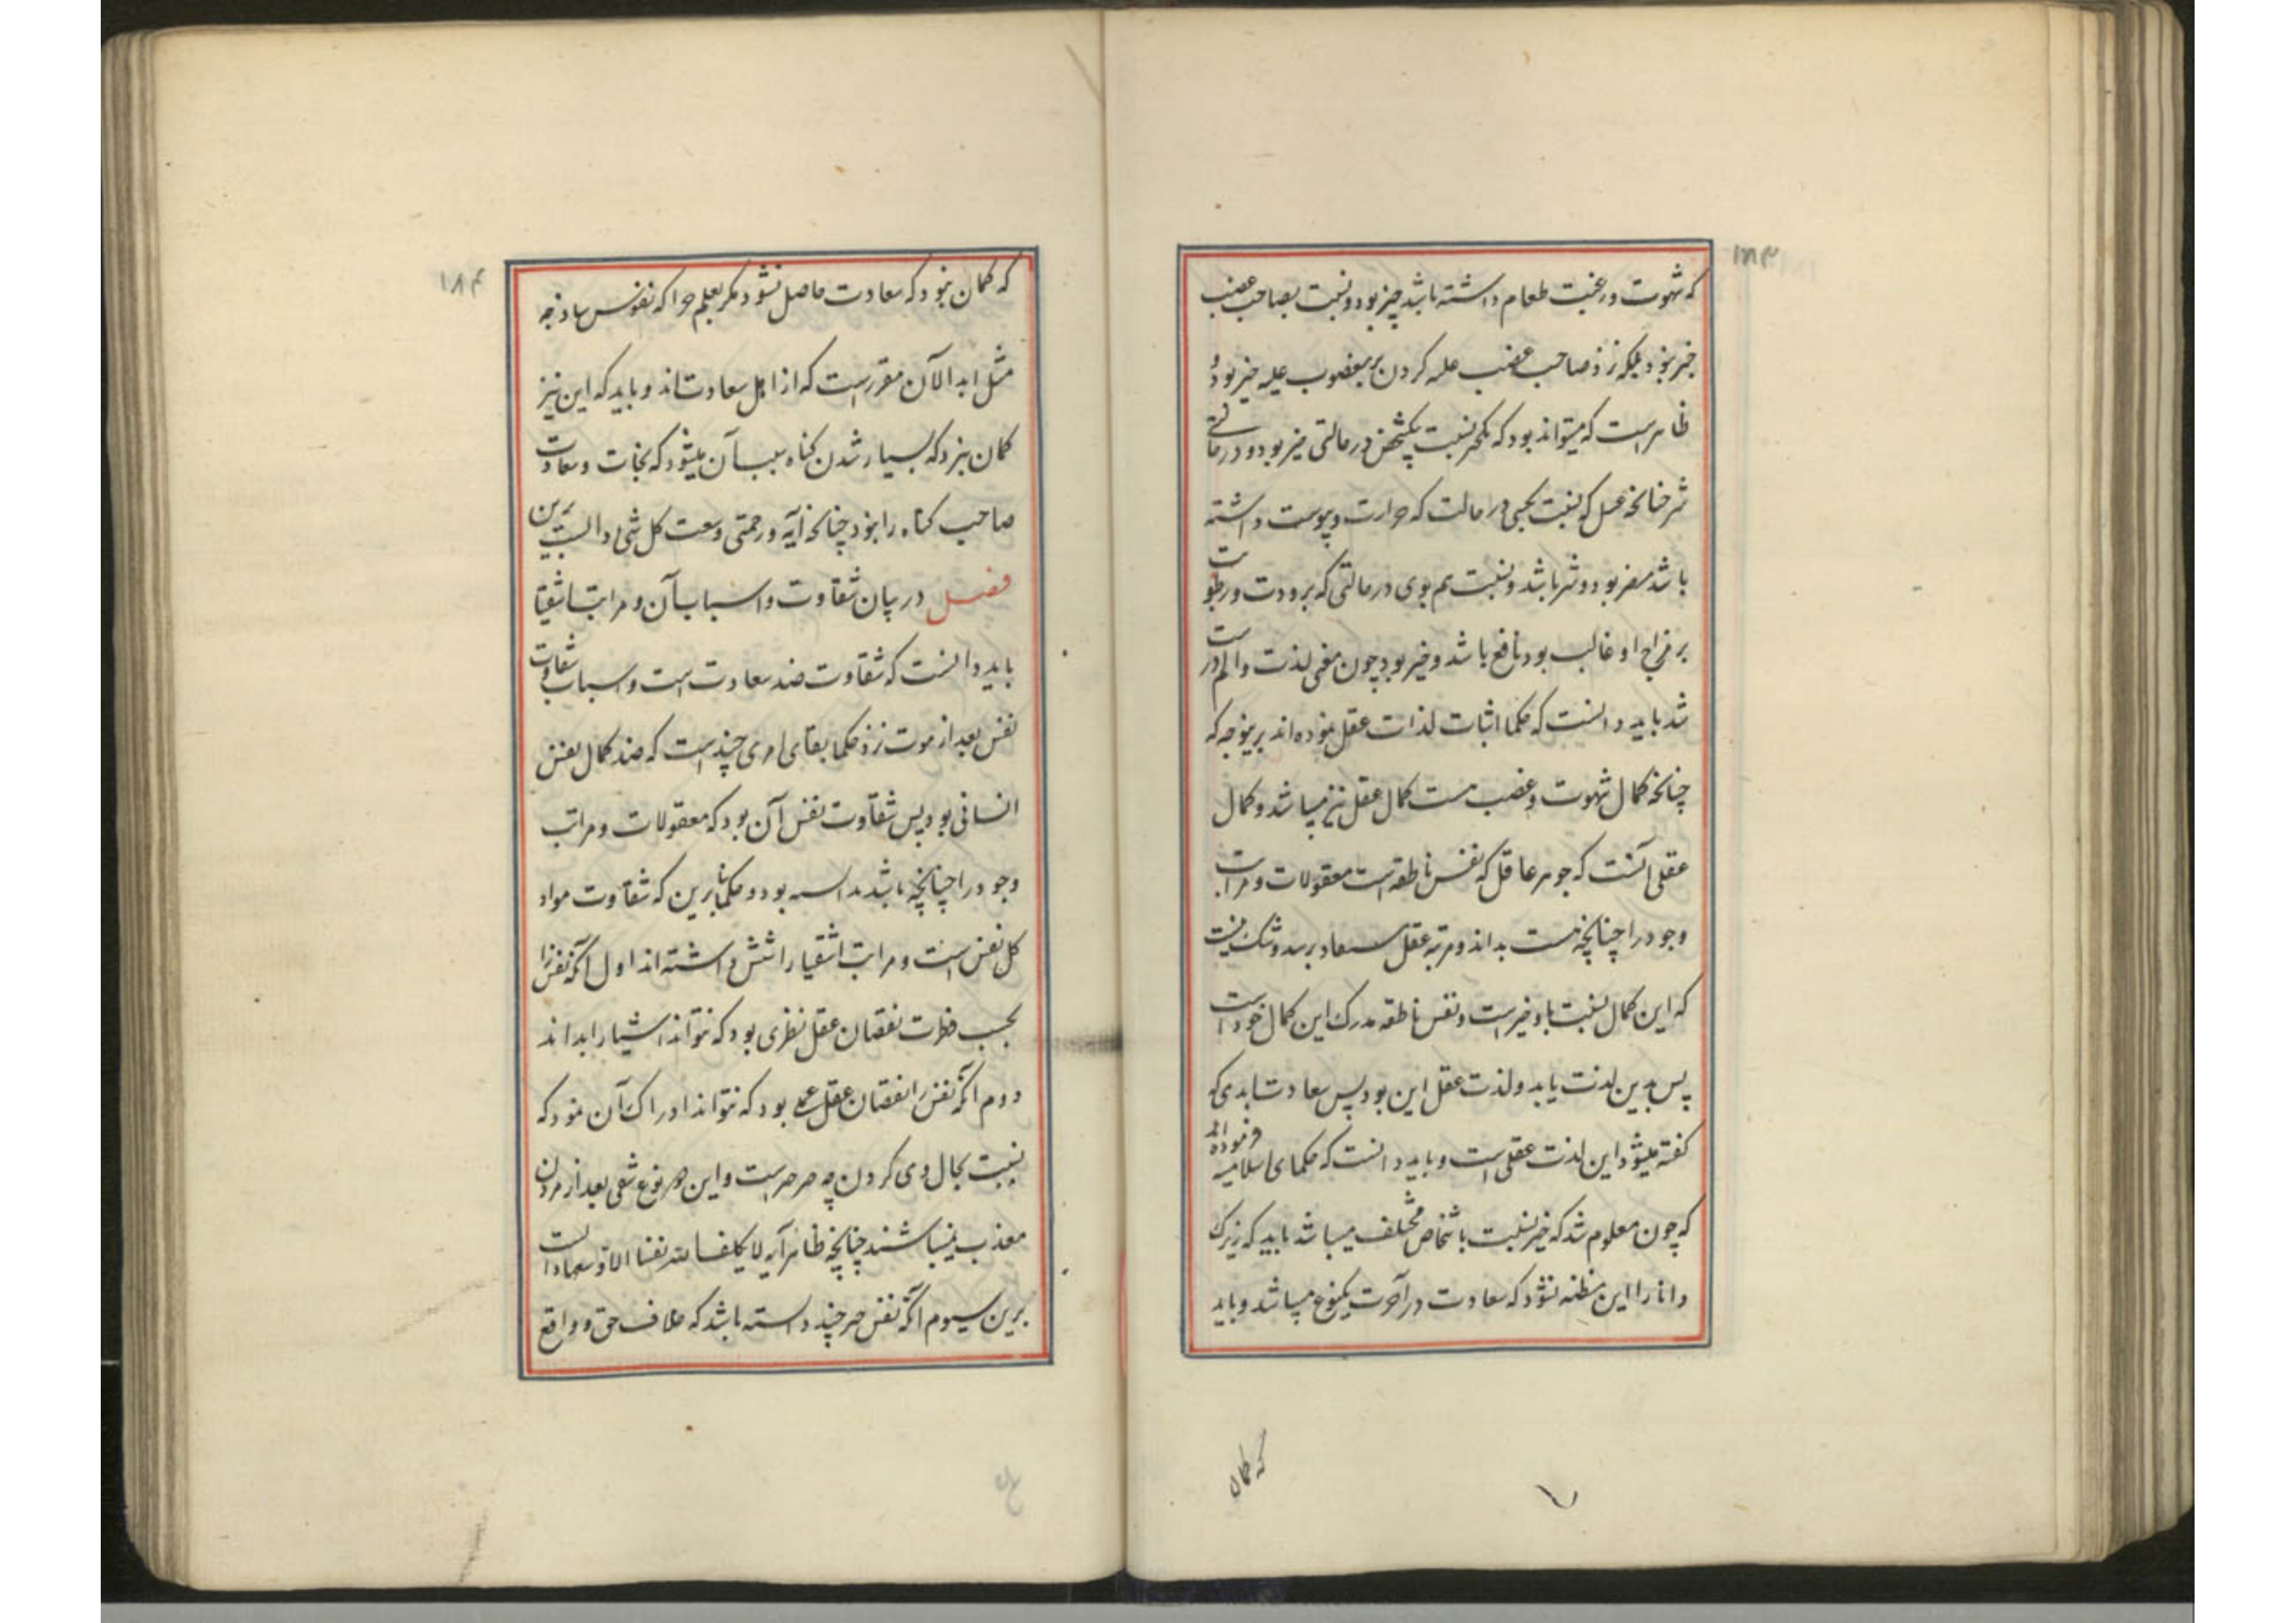 ۱۸۳
که شهوت و رغبت طعام داشته باشد چیز بود و نسبت بصاحب غضب
خیر نبود بلکه نزد صاحب غضب غلبه کردن بر مغضوب علیه خیر بود و
ظاهرست که میتواند بود که یکچیز نسبت بیکشخص در حالتی خیر بود و در حالتی
شر چنانچه عسل که نسبت بکسی در حالت که حرارت و یبوست داشته
باشد مضر بود و شر باشد و نسبت هم بوی در حالتی که برودت و رطوبت
بر مزاج او غالب بود نافع باشد و خیر بود چون معنی لذت و الم درست
شد باید دانست که حکما اثبات لذات عقل نموده اند برینوجه که
چنانچه کمال شهوت و غضب هست کمال عقل نیز میباشد و کمال
عقلی آنست که جوهر عاقل که نفس ناطقه است معقولات و مراتب
وجود را چنانچه هست بداند و مرتبه عقل مستفاد برسد و شک نیست
که این کمال نسبت باو خیرست و نفس ناطقه مدرک این کمال خود است
پس بدین لذت یابد و لذت عقل این بود پس سعادت ابدی که
گفته میشود این لذت عقلی است و باید دانست که حکمای اسلامیه فرموده اند
که چون معلوم شد که خیر نسبت باشخاص مختلف میباشد باید که زیرک
دانا را این مظنه نشود که سعادت در آخرت یکنوع میباشد و باید
که کمان
۱۸۴
که کمان نبود که سعادت حاصل نشود مکر بعلم چرا که نفوس ساذجه
مثل ابدالآن مقررست که از اهل سعادت اند و باید که این نیز
کمان نبرد که بسیار شدن کناه سبب آن میشود که نجات و سعادت
صاحب کناه را نبود چنانچه آیه و رحمتی وسعت کل شی دالست برین
فصل در بیان شقاوت و اسباب آن و مراتب اشقیا
باید دانست که شقاوت ضد سعادت است و اسباب شقاوت
نفس بعد از موت نزد حکما بقای امری چندست که ضد کمال نفس
انسانی بود پس شقاوت نفس آن بود که معقولات و مراتب
وجود را چنانچه باشد ندانسته بود و حکما برین که شقاوت مواد
کل نفس است و مراتب اشقیا را شش داشته اند اول آنکه نفس را
بحسب فطرت نقصان عقل نظری بود که نتواند اشیا را بداند
دوم آنکه نفس را نقصان عقل عملی بود که نتواند ادراک آن نمود که
نسبت بحال وی کردن چه ضررست و این دو نوع شقی بعد از مردن
معذب نمیباشند چنانچه ظاهر آیه لا یکلف الله نفسا الا وسعها دالست
برین سیوم آنکه نفس هر چند دانسته باشد که خلاف حق و واقع